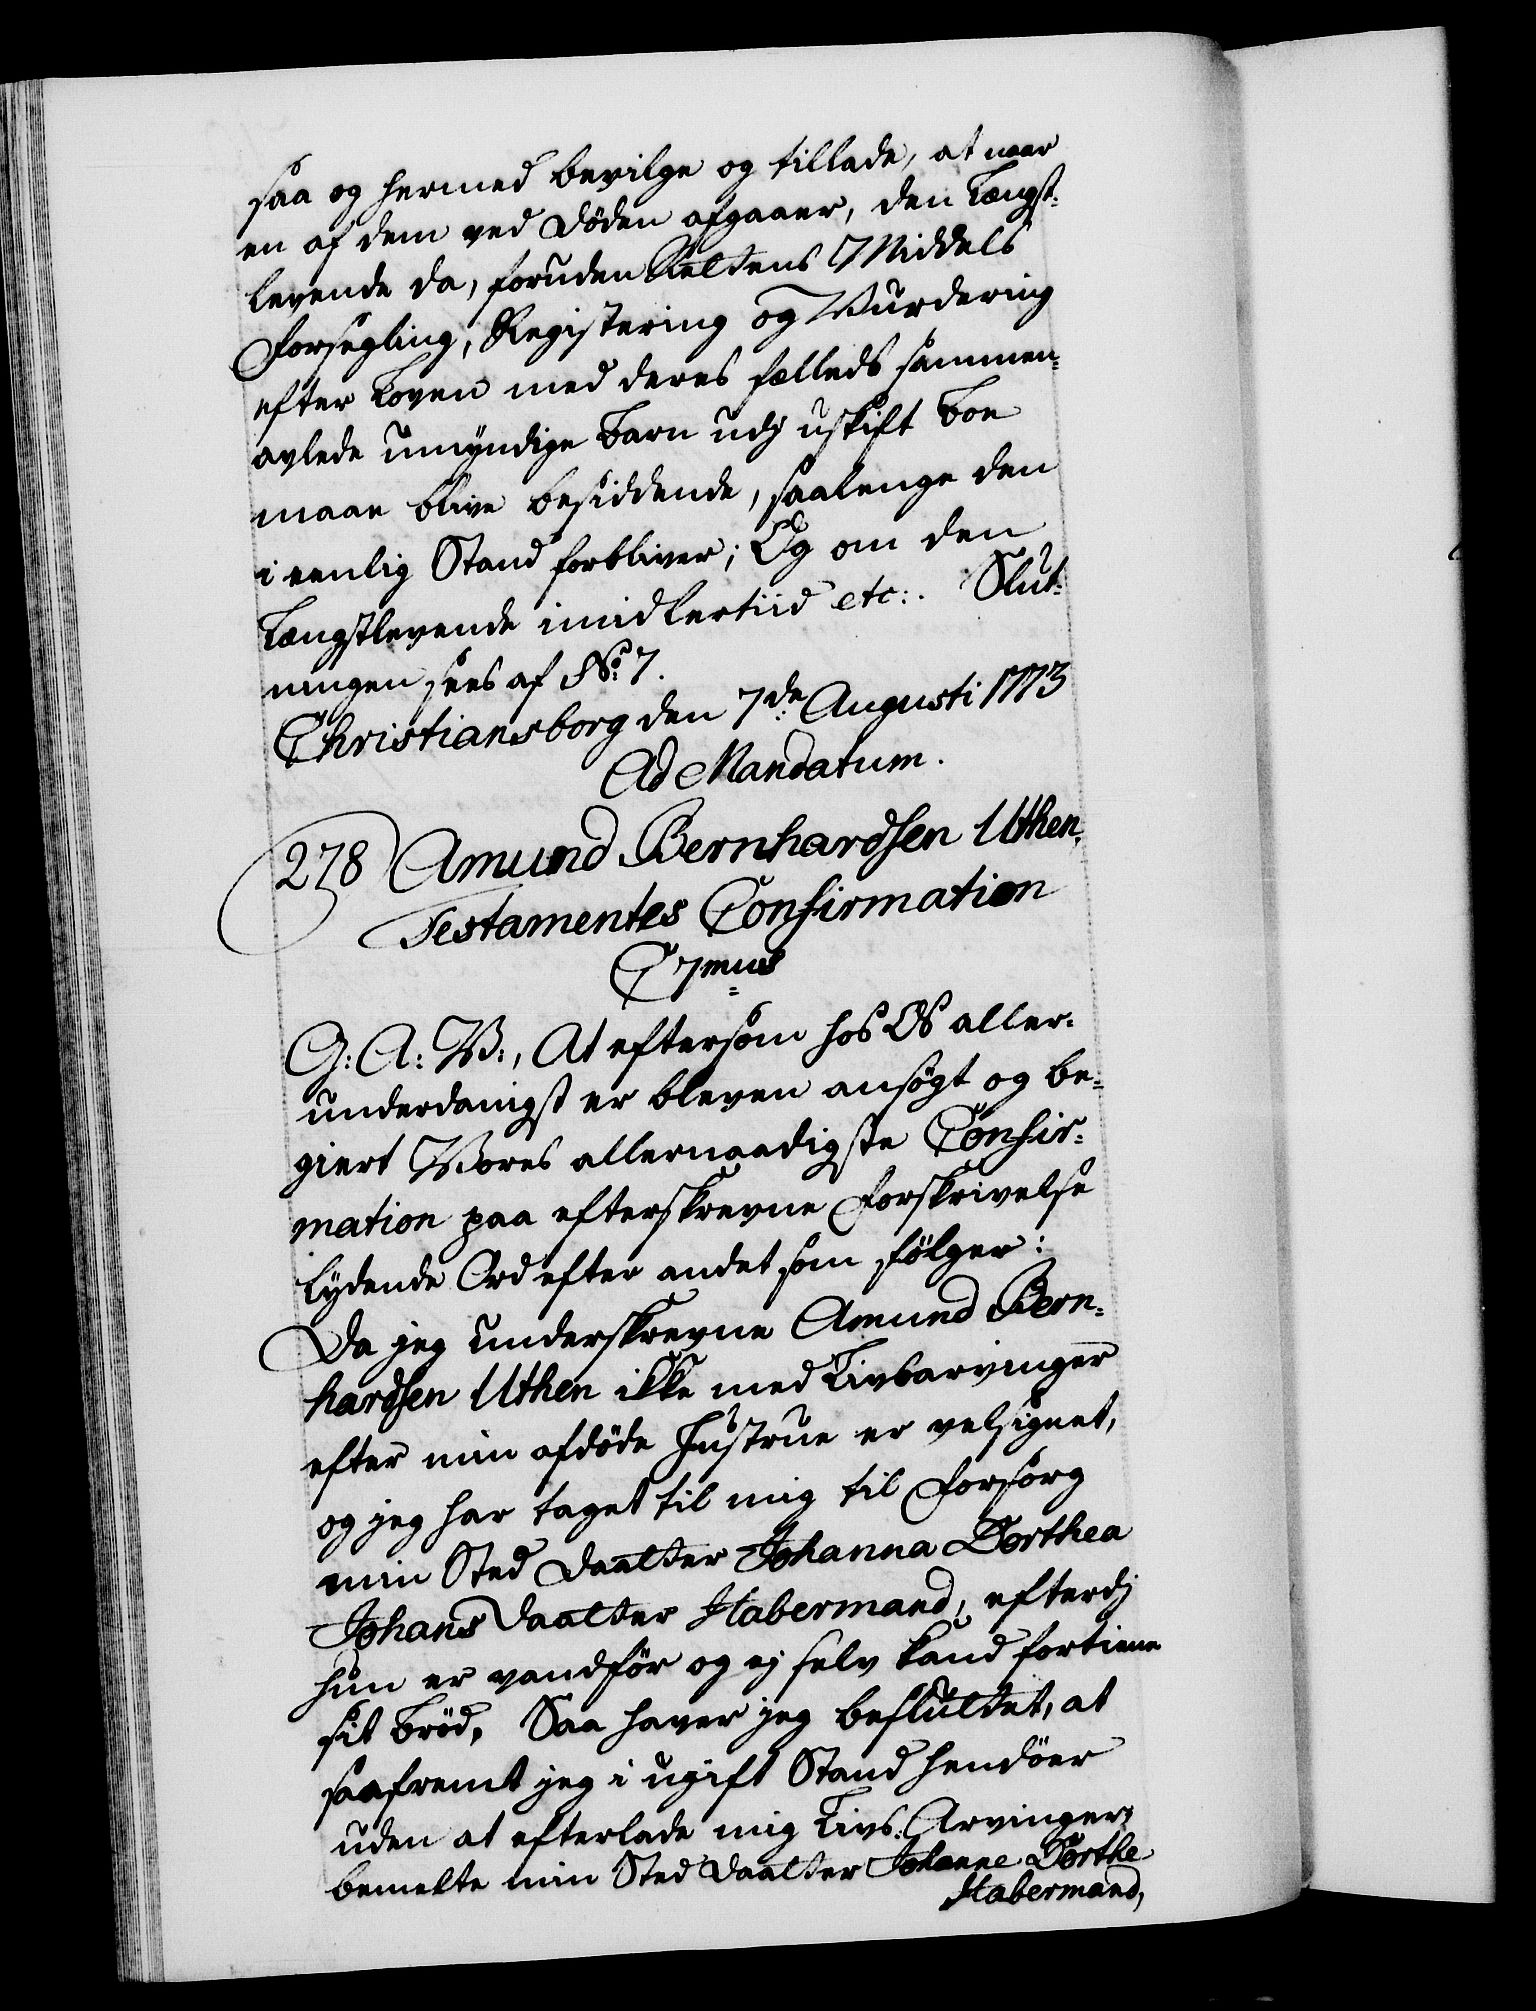 saa og hermed bevilge og tillade, at naar
en af dem ved Döden afgaaer, den Længst-
levende da, foruden Rettens Middels
Forsegling, Registering og Vurdering
efter Loven med deres fælleds sammen-
avlede umyndige Barn udj uskift Boe
maae blive besiddende, saalenge den
i eenlig Stand forbliver; Og om den
Længstlevende imidlertiid etc:. Slut-
ningen sees af No 7.
Christiansborg den 7de Augusti 1773
Ad Mandatum.
278 Amund Bernhardsen Uthen,
Testamentes Confirmation
C 7mus
G: A: V:, At eftersom hos Os aller-
underdanigst er bleven ansøgt og be-
giert Vores allernaadigste Confir-
mation paa efterskrevne Forskrivelse
lydende Ord efter andet som fölger:
Da jeg underskrevne Amund Bern-
hardsen Uthen ikke med Livsarvinger
efter min afdöde Hustrue er velsignet,
og jeg har taget til mig til Forsorg
min Sted Daatter Johanna Dorthea
Johans Daatter Habermand, efterdj
hun er vandför og ej selv kand fortiene
sit Bröd, Saa haver jeg besluttet, at
saafremt jeg i ugift Stand hendöer
uden at efterlade mig Livs-Arvinger,
bemelte min Sted Daatter Johanne Dorthe
Habermand,